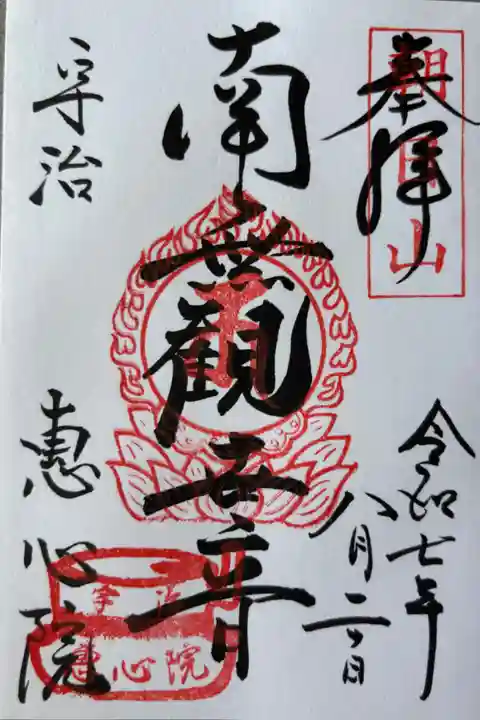 奉拝
朝日山
令和七年
八月二日
南無観世音
宇治
恵心院
宇治
恵心院